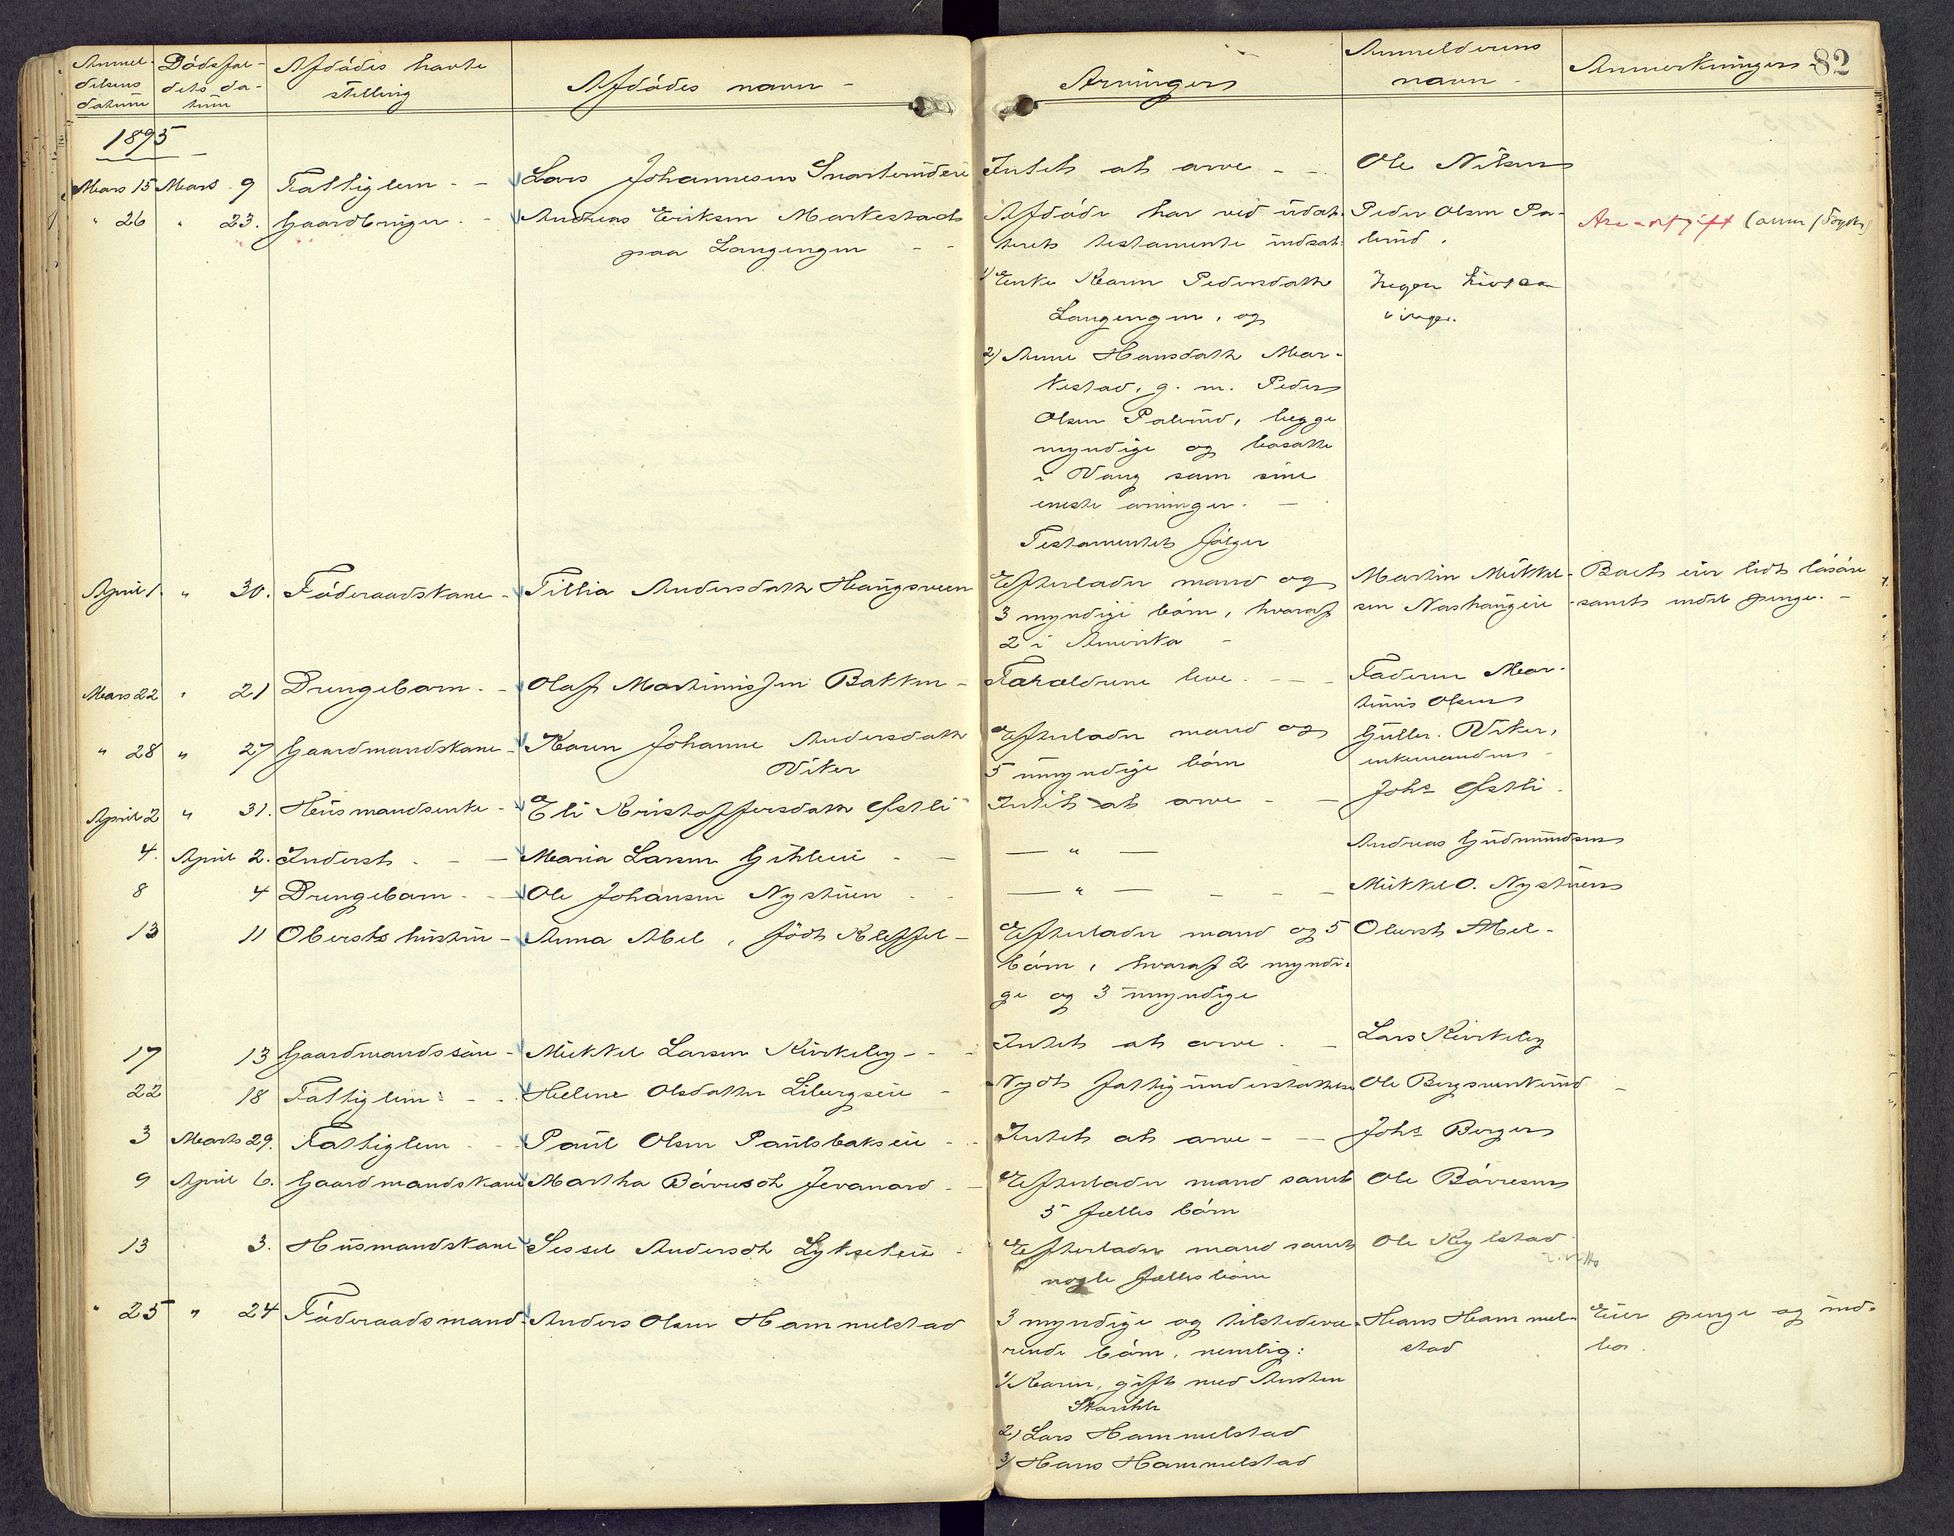 Anmel- Dødsfal- Afdødes havte Afdødes navn Arvinger Anmelderens Anmerkninger 82
delsens dets da- stilling navn
datum tum
1895
Mars 15 Mars 9 Fattiglem Lars Johannesen Snarteruderie Intet at arve Ole Nilsen
" 26 " 23. Gaardbruger Andreas Eriksen Markestad Afdøde har ved udat- Peder Olsen Pa-
paa Langengen terets testamente indsat lerud.
Arveafgift
1) Enke Karen Pedersdatter
Langengen, og
2) Anne Hansdatter Mar-
kestad, g. m. Peder
Olsen Palerud, begge
myndige og bosatte
i Vang som sine
eneste arvinger.
Testamentet følger
April 1. " 30. Føderaadskone Tillia Andersdatter Haugsveen Efterlader mand og Martin Mikkel- Boets eier lidt løsøre
3 myndige børn, hvoraf sen Nashaugeie samt endel penge.
2 i Amerika
Mars 22 " 21 Drengebarn Olaf Martiniussen Bakken Forældrene leve. Faderen Mar-
tinus Olsen
" 28 " 27 Gaardmandskone Karen Johanne Andersdatter Efterlader mand og Gulbr. Viker,
Viker 5 umyndige børn enkemanden
April 2 " 31. Husmandsenke Eli Kristoffersdatter Østli Intet at arve Johs Østli
4. April 2. Inderst Maria Larsen Gihleeie — " — Andreas Gudmundsen
8 4 Drengebarn Ole Johansen Nystuen — " — Mikkel O. Nystuen
13 11 Oberst hustru Anna Abel, født Kleffel Efterlader mand og 5 Oberst Abel
børn, hvoraf 2 myndi-
ge og 3 umyndige
17 13 Gaardmandssøn Mikkel Larsen Kirkeby Intet at arve. Lars Kirkeby
22 18 Fattiglem Helene Olsdatter Libergseie Nydt fattigunderstøttelse Ole Bergsvenkrud
3 Marts 29. Fattiglem Paul Olsen Paulsbakeie Intet at arve Johs Berger
9 April 6. Gaardmandskone Martha Børresdt Jevanord Efterlader mand samt Ole Børresen
5 fælles børn
13 3. Husmandskone Sissel Andersdt Lykseteie Efterlader mand samt Ole Kylstad
nogle fælles børn
" 25 " 24 Føderaadsmand Anders Olsen Hammelstad 3 myndige og tilstedevæ- Hans Hammel- Eier penge og ind-
rende børn, nemlig: stad bo.
1) Karen, gift med Austen
2) Lars Hammelstad
3) Hans Hammelstad